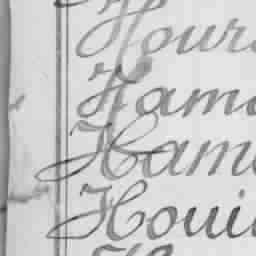 Hours
Hama
Hama
Houi